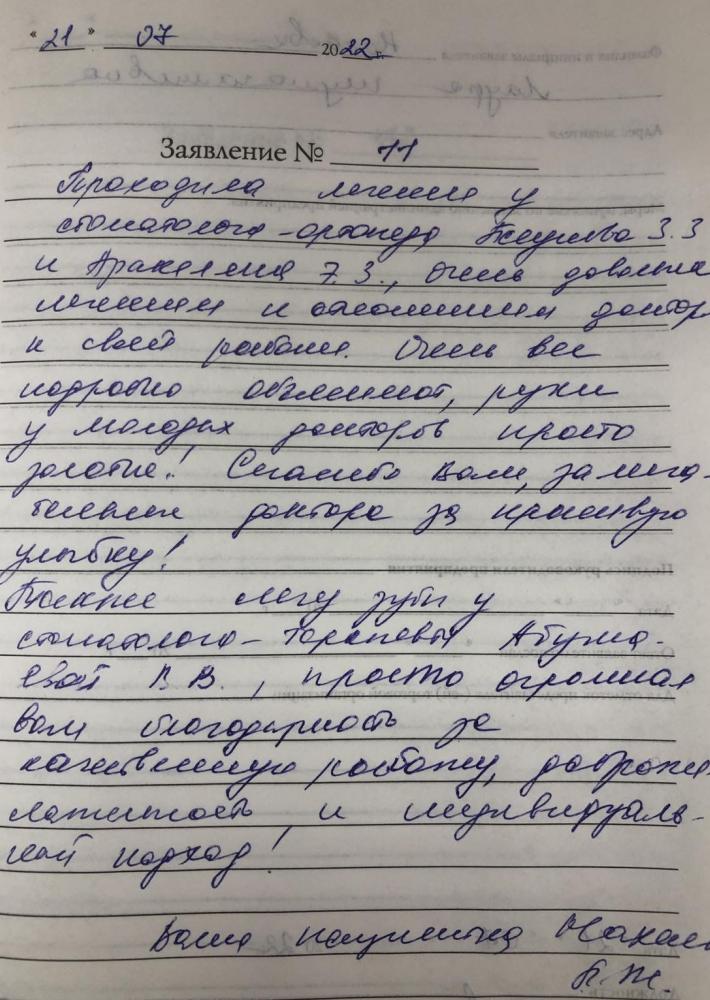 "21" 07 2022 г.
Заявление № 11
Проходила лечение у
стоматолога-ортопеда З.З
и Аракеляна Э.З., очень довольна
лечением и отношением доктор
к своей работе. Очень все
подробно объясняют, руки
у молодых докторов просто
золотые! Спасибо вам, замеча-
тельные доктора за красивую
улыбку!
Также лечу зубы у
стоматолога-терапевта
В.В., просто огромная
вам благодарность за
качественную работу, доброже
лательность и индивидуаль-
ный подход!
Ваша пациентка